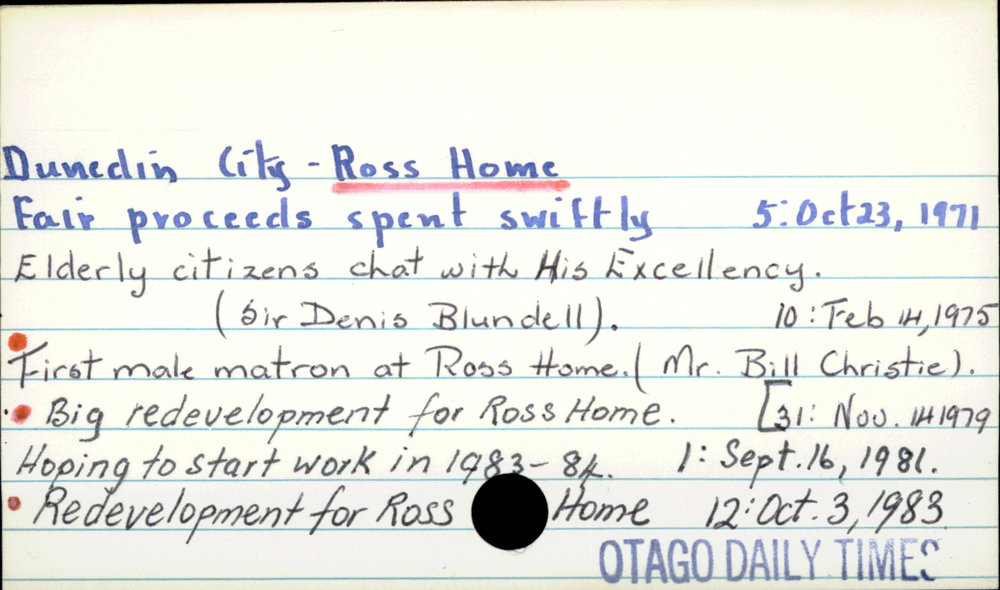 Dunedin City - Ross Home
Fair proceeds spent swiftly 5: Oct 23, 1971
Elderly citizens chat with His Excellency.
(Sir Denis Blundell). 10: Feb 14, 1975
First male matron at Ross Home. (Mr. Bill Christie).
Big redevelopment for Ross Home. [31: Nov. 14 1979
Hoping to start work in 1983-84. 1: Sept. 16, 1981.
Redevelopment for Ross Home 12: Oct. 3, 1983
OTAGO DAILY TIMES